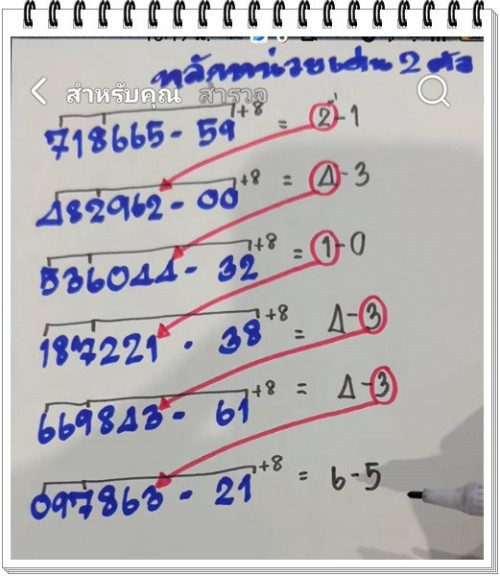 หลักหน่วยเด่น 2 ตัว
สำหรับคุณ สำรวจ
718665 - 59 +8 = 2-1
482962 - 00 +8 = 4-3
536044 - 32 +8 = 1-0
187221 - 38 +8 = 4-3
669843 - 61 +8 = 4-3
097863 - 21 +8 = 6-5